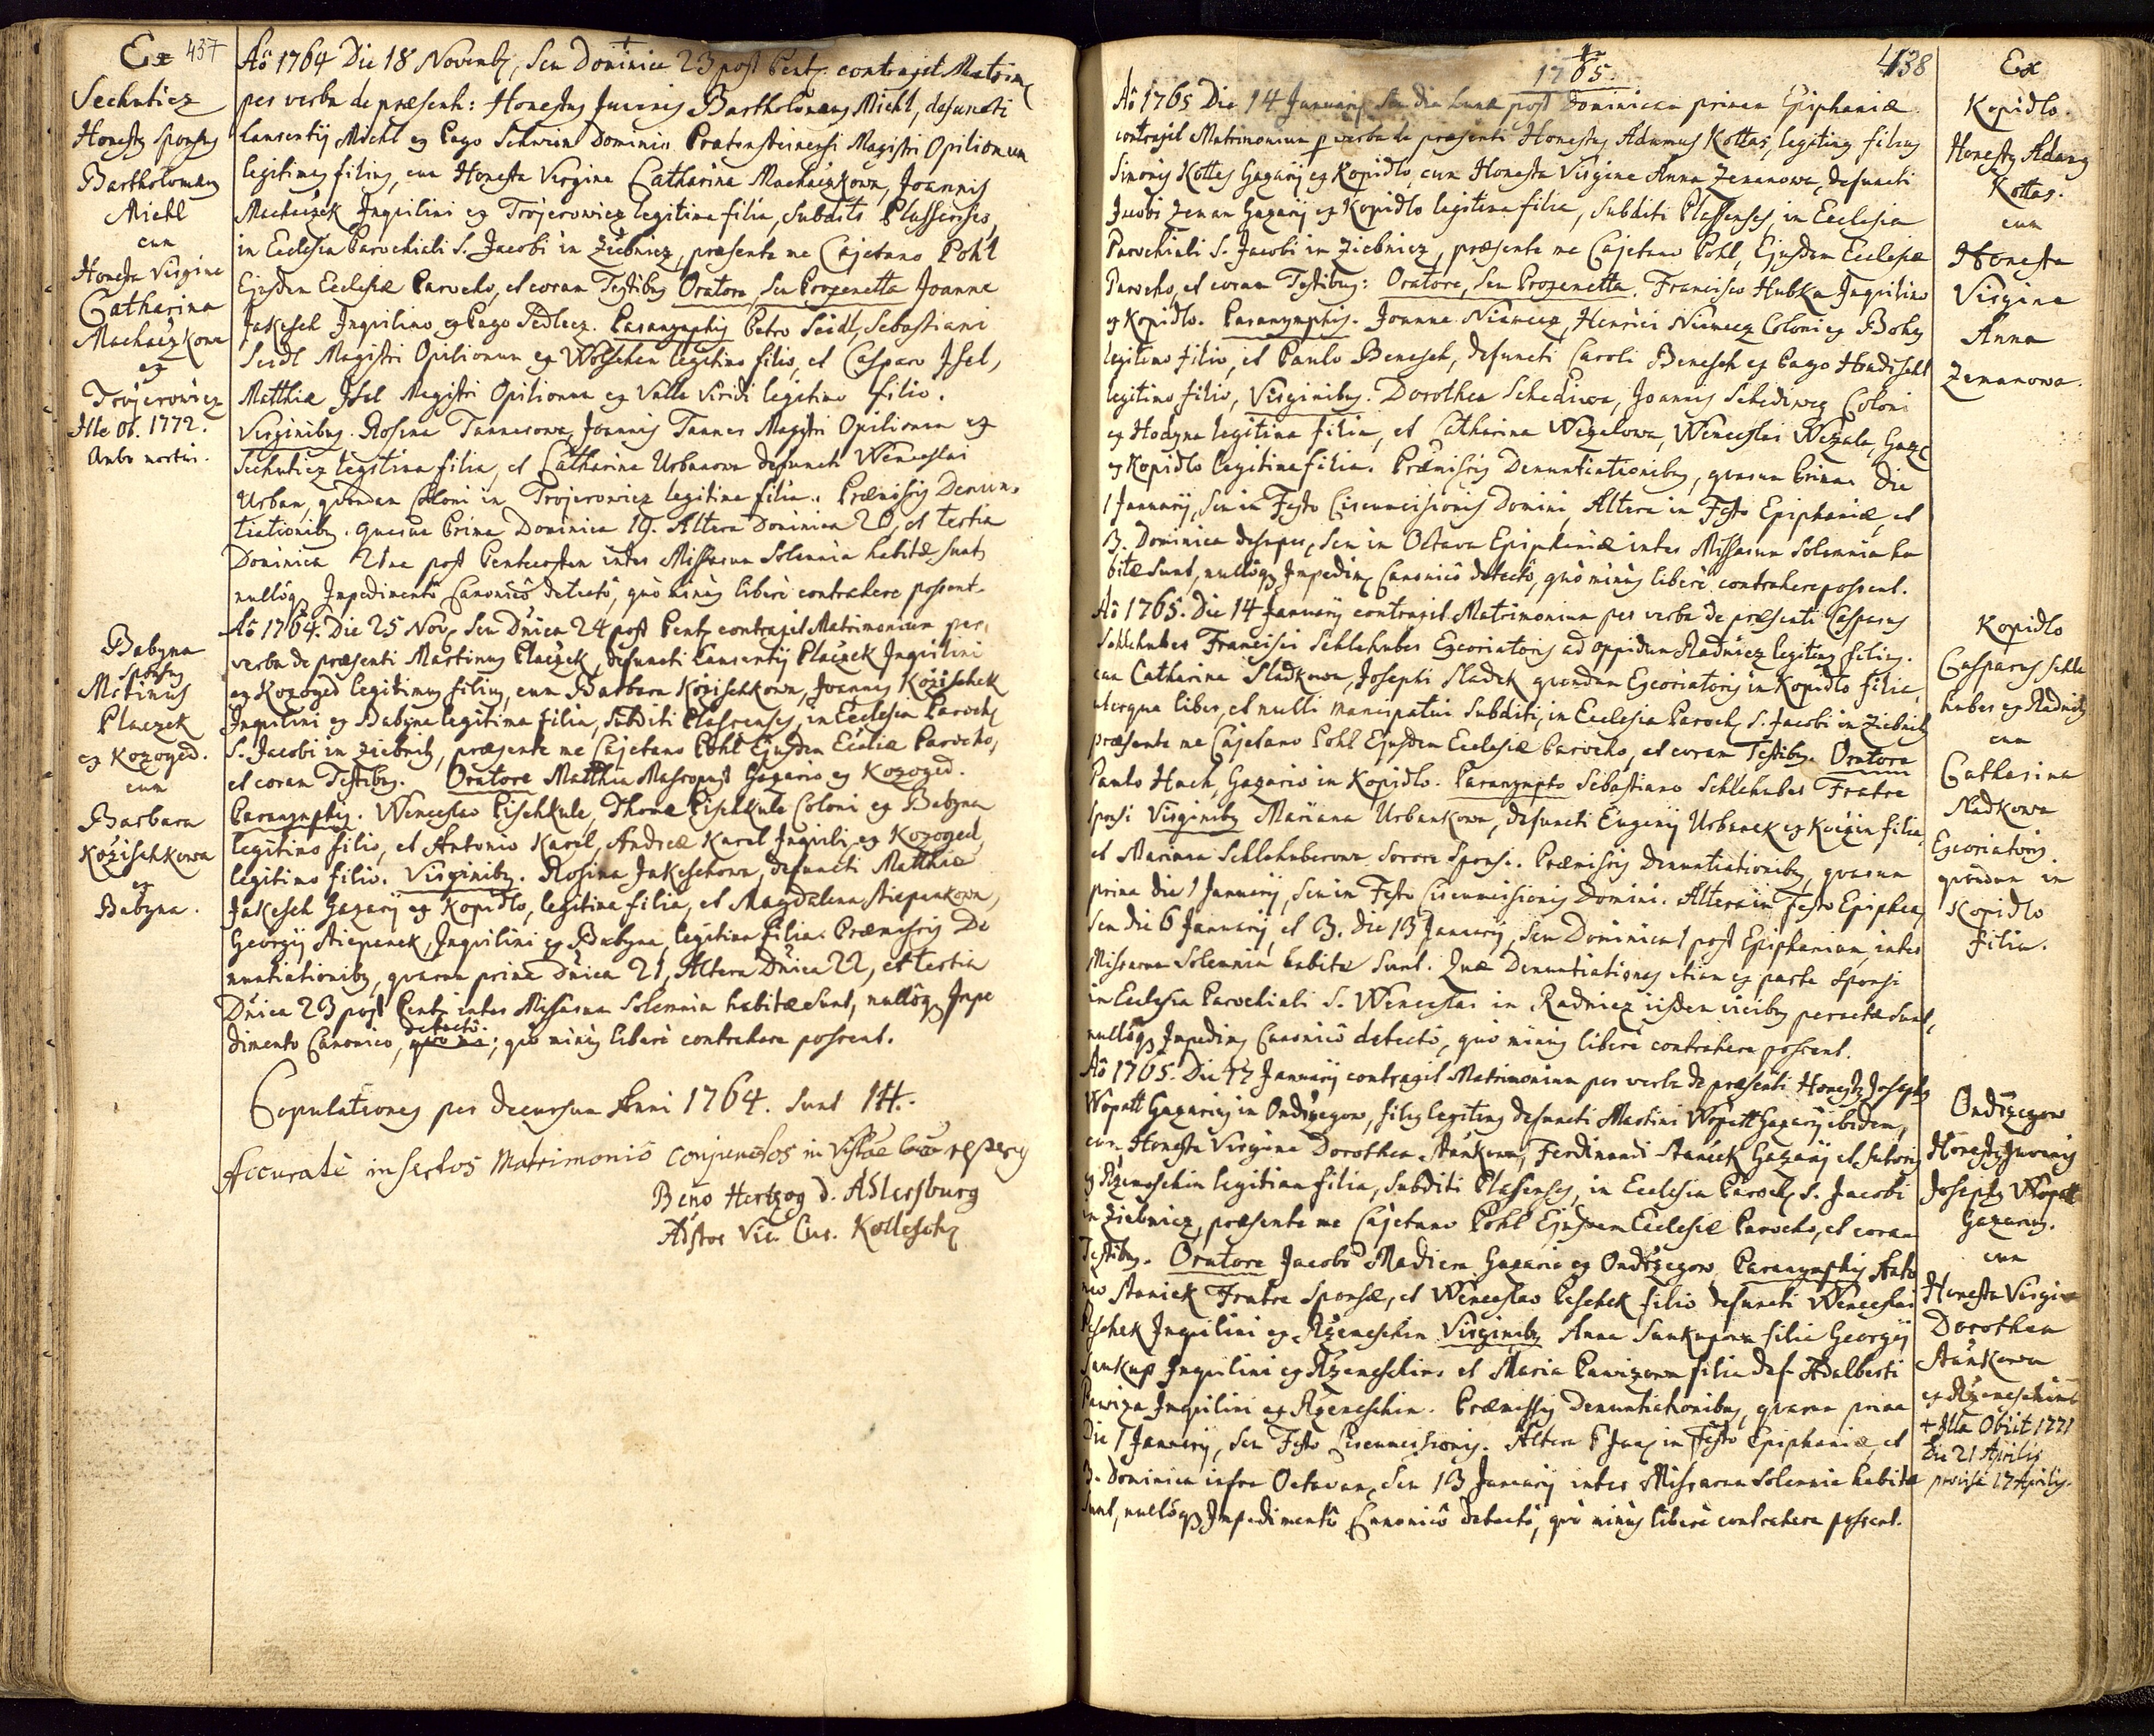 437
Ex
Sechuticz
Honestg Sponsg
Bartholomæg
Michl
cum
Honesta Virgine
Catharina
Machaczkowa
ex
Trojerowicz
Ille ob. 1772.
Ambo mortui.
Aô 1764 Die 18 Novemb, Seu Dominica 23 post Pent. contraxit Matrim
per verba de præsenti: Honestus Juvenis Bartholomæus Michl, defuncti
Laurentij Michl ex Pago Schwein Dominii Pratensteinensi Magistri Opilionum
legitimus filius, cum Honesta Virgine Catharina Machaczkowa, Joannis
Machaczek Inquilini ex Trojerowicz legitima filia, Subditi Plassenses,
in Ecclesia Parochiali S. Jacobi in Ziebnicz, præsente me Cajetano Pohl
Ejusdem Ecclesiæ Parocho, et coram Testibus Oratore, Seu Proxenetta Joanne
Jakesch Inquilino ex Pago Sedlecz. Paranymphis Petro Seidl, Sebastiani
Seidl Magistri Opilionum ex Wolschen legitimo filio, et Casparo Isel,
Matthiæ Isel Magistri Opilionum ex Valle Viridi legitimo filio.
Virginibus. Rosina Tannerowa, Joannis Tanner Magistri Opilionum ex
Sechuticz legitima filia, et Catharina Urbanowa defuncti Wenceslai
Urban, quondam Coloni in Trojerowicz legitima filia. Præmissis Denun-
tiationibus. quarum Prima Dominica 19. Altera Dominica 20, et tertia
Dominica 21ma post Pentecosten inter Missarum Solemnia habitæ sunt,
nullôq Impedimentô Canonicô detectô, quô minùs liberè contrahere possent.
Babyna
Sponsg
Mrtinus
Placzek
ex Kozoged.
cum
Barbara
Kozischkowa
ex
Babyna.
Aô 1764. Die 25 Nov, Seu Dnica 24 post Pent. contraxit Matrimonium per
verba de præsenti Martinus Placzek, defuncti Laurentij Placzek Inquilini
ex Kozoged legitimus filius, cum Barbara Kozischkowa, Joannis Kozischek
Inquilini ex Babyna legitima filia, Subditi Plassenses, in Ecclesia Paroch
S. Jacobi in Ziebnitz, præsente me Cajetano Pohl Ejusdem Eccliæ Parocho,
et coram Testibus. Oratore Matthia Masropust Gazario ex Kozoged.
Paranymphis. Wenceslao Pischkule, Thomæ Pischkule Coloni ex Babyna
legitimo filio, et Antonio Karel, Andreæ Karel Inquili ex Kozoged,
legitimo filio. Virginibus. Rosina Jakeschowa, defuncti Matthiæ
Jakesch Gazarij ex Kopidlo, legitima filia, et Magdalena Stiepankowa,
Georgij Stiepanek, Inquilini ex Babyna, legitima filia. Præmissis De
nuntiationibus, quarum prima Dnica 21, Altera Dnica 22, et tertia
Dnica 23 post Pent. inter Missarum Solemnia habitæ sunt, nullôq Impe
detectô.
dimento Canonico, quo mi; quô minùs liberè contrahere possent.
Copulationes per decursum Anni 1764. Sunt 14.
Accuratè insertos Matrimonio conjunctos in Visitae
Beno Hertzog d. Adlersburg
Adstor Vic. Cur. Kollesch
1765.
438
Aô 1765 Die 14 Januarij Seu die Lunæ post Dominicam primam Epiphaniæ
contraxit Matrimonium p verba de præsenti Honestus Adamus Kottas, legitimus filius
Simonis Kottas Gazarij ex Kopidlo, cum Honesta Virgine Anna Zemanowa, defuncti
Jacobi Zeman Gazarij ex Kopidlo legitima filia, Subditi Plassenses, in Ecclesia
Parochiali S. Jacobi in Ziebnicz, præsente me Cajetano Pohl, Ejusdem Ecclesiæ
Parocho, et coram Testibus: Oratore, Seu Proxenetta. Francisco Hubka Inquilino
ex Kopidlo. Paranymphis. Joanne Niemecz, Henrici Niemecz Coloni ex Bohy
legitimo filio, et Paulo Benesch, defuncti Caroli Benesch ex Pago Hradischt
legitimo filio, Virginibus. Dorothea Schediwa, Joannis Schediweg Coloni
ex Hodyna legitima filia, et Catharina Wezalowa, Wenceslai Wezala, Gaz
ex Kopidlo legitima filia. Præmissis Denuntiationibus, quarum Prima die
1 Januarij, Seu in Festo Circumcisionis Domini, Altera in Festo Epiphaniæ, et
3. Dominica desuper, Seu in Octava Epiphaniæ inter Missarum Solemnia ha
bitæ sunt, nullôq Impedim Canonicô detectô, quô minùs liberè contrahere possent.
Ex
Kopidlo.
Honestg Adamg
Kottas.
cum
Honesta
Virgine
Anna
Zemanowa.
Aô 1765. Die 14 Januarij contraxit Matrimonium per verba de præsenti Casparus
Schlehuber Francisci Schlehuber Excoriatoris ad oppidum Radnicz legitimg filius.
cum Catharina Sladkowa, Josephi Sladek quondam Excoriatoris in Kopidlo filia,
uterque liber, et nulli mancipatui Subditi, in Ecclesia Paroch S. Jacobi in Ziebnitz
præsente me Cajetano Pohl Ejusdem Ecclesiæ Parocho, et coram Testibus. Oratore
Paulo Huch, Gazario in Kopidlo. Paranympto Sebastiano Schlehuber Fratre
Sponsi Virginibus Mariana Urbankowa, defuncti Eugenij Urbanek ex Kuizin filia,
et Mariana Schlehuberowa Sorore Sponsi. Præmissis Denuntiationibus, quarum
prima die 1 Januarij, Seu in Festo Circumcisionis Domini. Altera in Festo Epiphan
Seu die 6 Januarij, et 3. die 13 Januarij, Seu Dominica 1 post Epiphaniam, inter
Missarum Solemnia habitæ sunt. Quæ Denuntiationes etiam ex parte Sponsi
in Ecclesia Parochiali S. Wenceslai in Radnicz iisdem vicibus peractæ sunt,
nullôq Impedim Canonicô detectô, quô minùs liberè contrahere possent.
Kopidlo
Casparus Schle
huber ex Radnitz
cum
Catharina
Sladkowa
Excoriatoris
quondam in
Kopidlo
filia.
Aô 1765. Die 17 Januarij contraxit Matrimonium per verba de præsenti Honestg Josephg
Wopatt Gazarius in Ondrzegow, filius legitimg defuncti Martini Wopatt Gazarij ibidem,
cum Honesta Virgine Dorothea Stankowa, Ferdinandi Staniek Gazarij et Sutoris
ex Rzemeschin legitima filia, Subditi Plassenses, in Ecclesia Paroch S. Jacobi
in Ziebnicz, præsente me Cajetano Pohl Ejusdem Ecclesiæ Parocho, et coram
Testibus. Oratore Jacobo Madiera Gazario ex Ondrzegow. Paranymphis Anto
nio Staniek Fratre Sponsæ, et Wenceslao Peschek filio defuncti Wenceslai
Peschek Inquilini ex Rzemeschin Virginibus Anna Sunkupowa filia Georgij
Sunkup Inquilini ex Rzemeschin, et Maria Pawizowa filia def. Adalberti
Pawiza Inquilini ex Rzemeschin. Præmissis Denuntiationibus, quarum prima
Die 1 Januarij, Seu Festo Circumcisionis. Altera 6 Jua in Festo Epiphaniæ, et
3. Dominica infra Octavam, Seu 13 Januarij inter Missarum Solemnia habitæ
Sunt, nullôq Impedimentô Canonicô detectô, quô minùs liberè contrahere possent.
Ondrzegow
Honestg Juvenis
Josephg Wopatt
Gazarius.
cum
Honesta Virgine
Dorothea
Stankowa
ex Rzemeschin
+ Illa Obiit 1771
die 21 Aprilis
provisa 17 Aprilis.